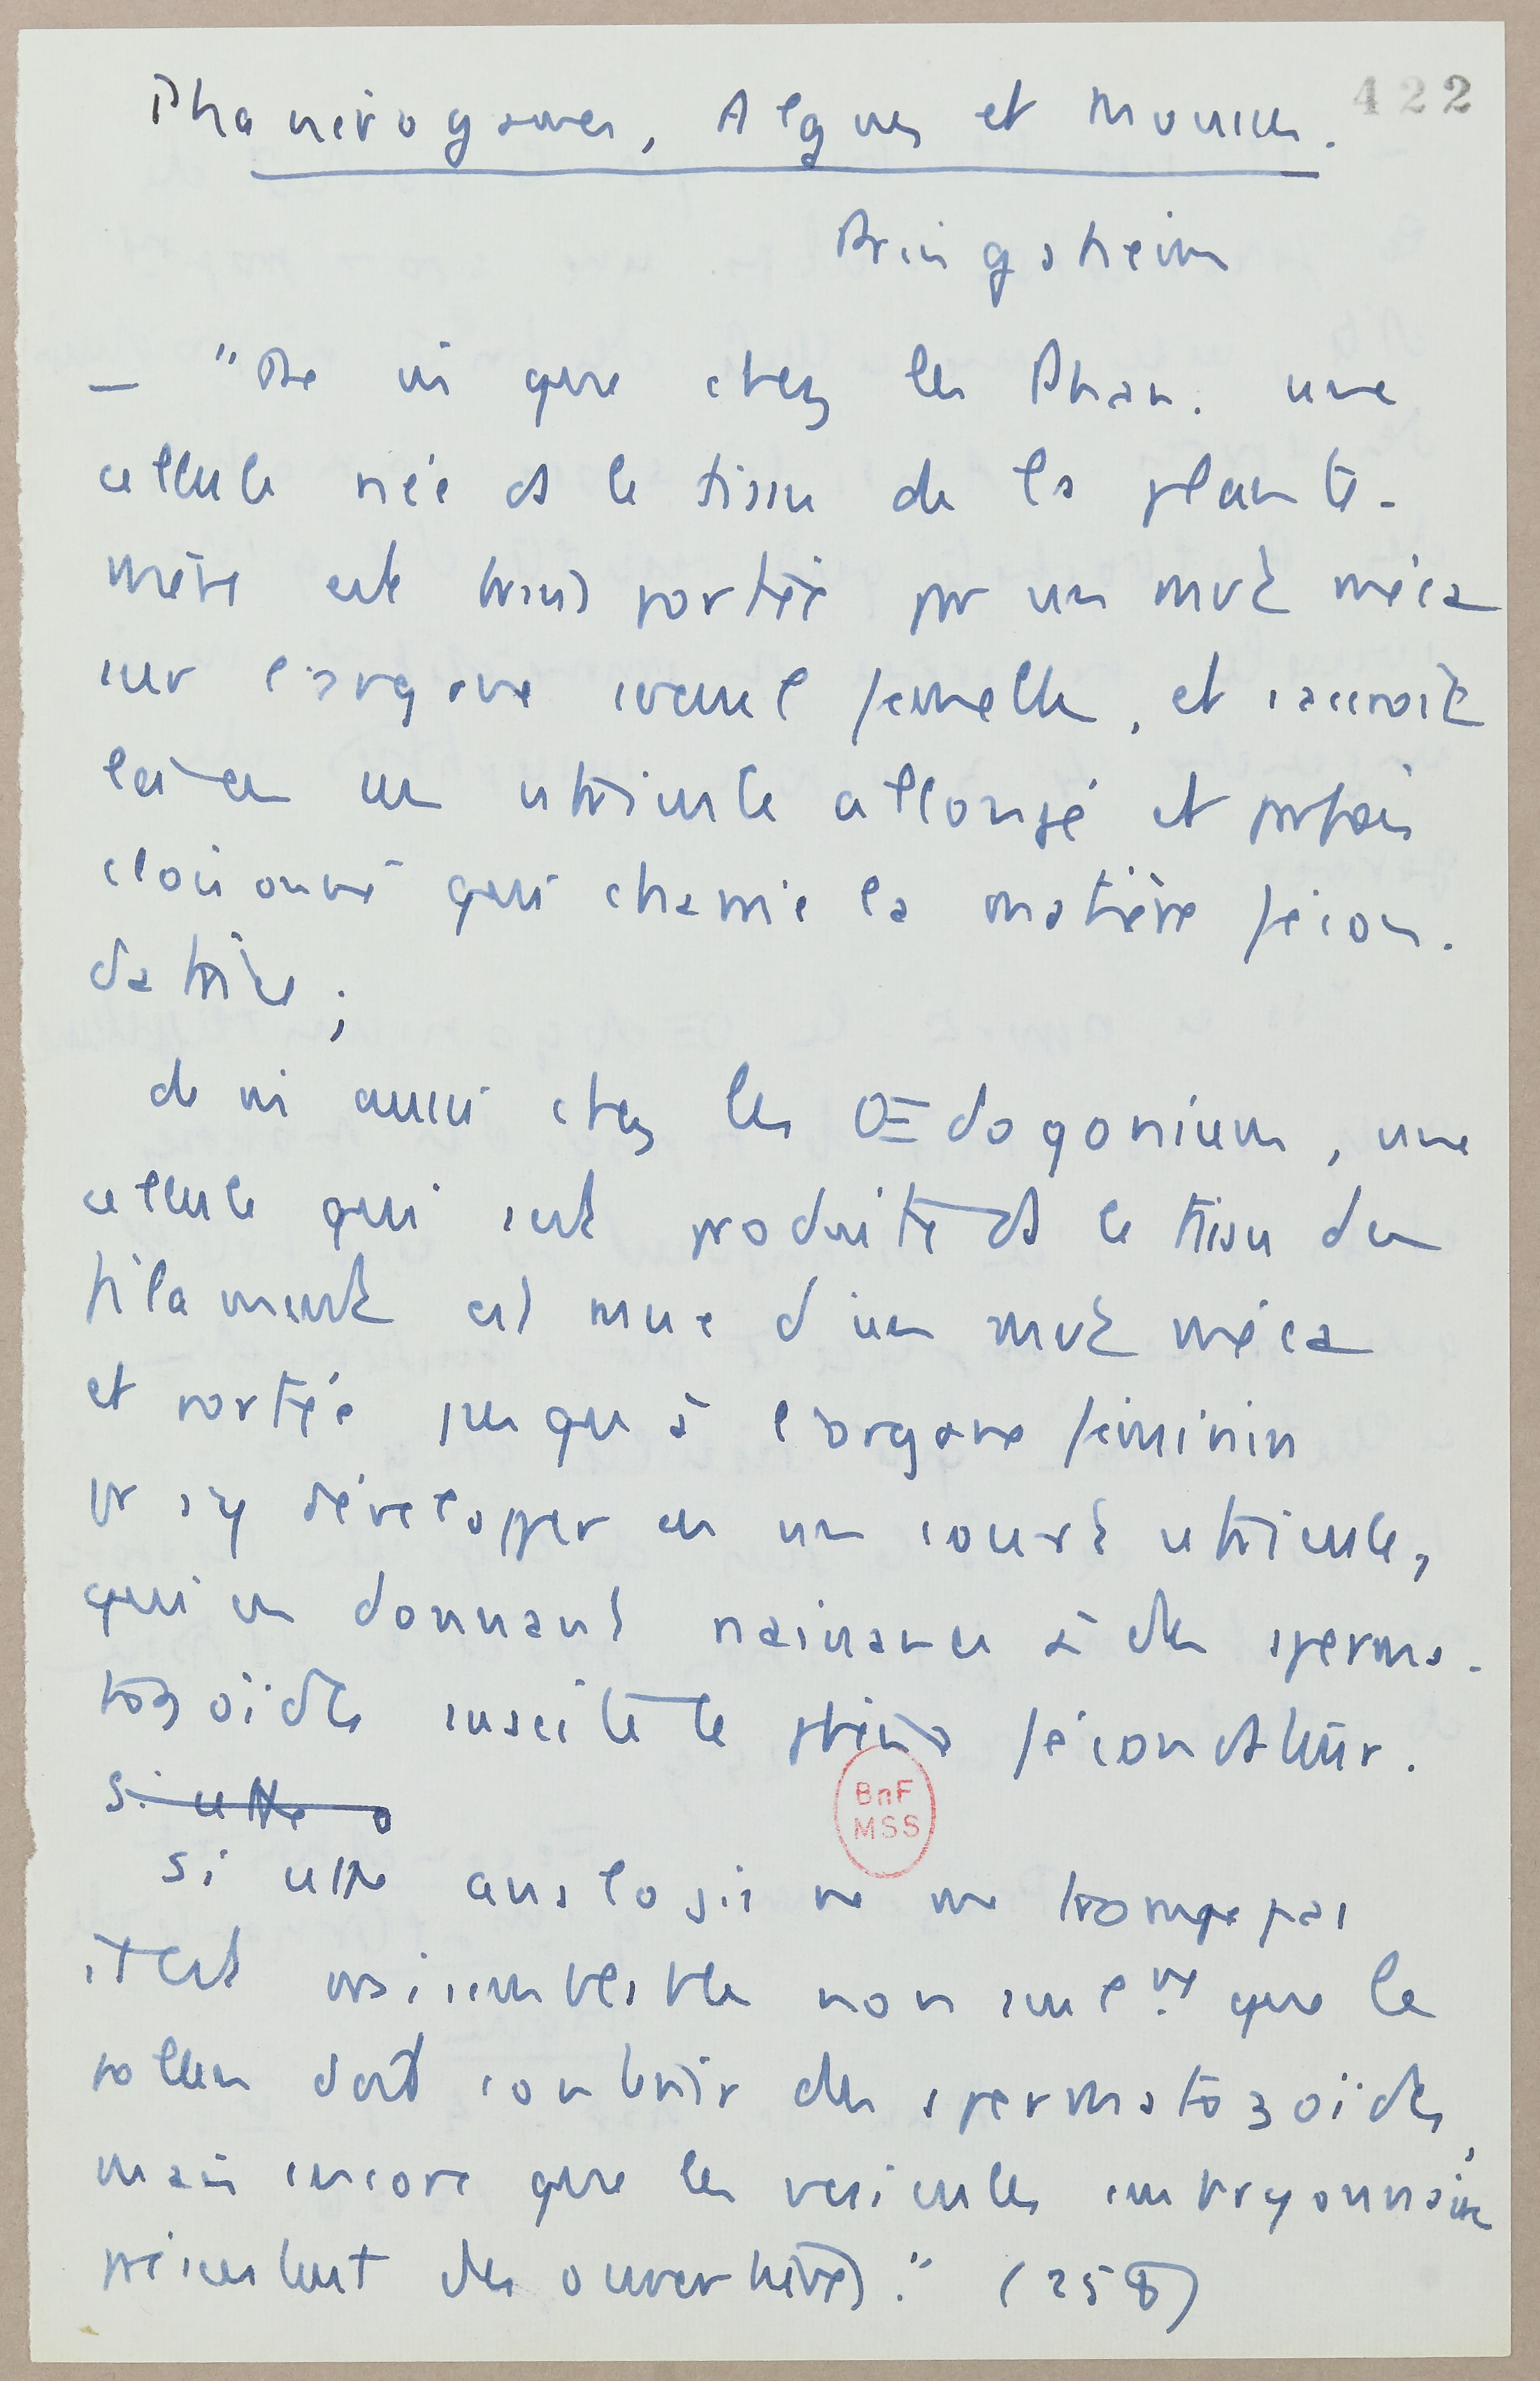 Phanérogames, Algues et Mousses.
422
Pringsheim
— "De mê que chez les Phan. une
cellule née ds le tissu de la plante-
mère est transportée pr un mvt méca
sur l'organe sexuel femelle, et s'accroît
là en un utricule allongé et parfois
cloisonné qui charrie la matière fécon-
datrice ;
de mê aussi chez les Œdogonium, une
cellule qui s'est produite ds le tissu du
filament est mue d'un mvt méca
et portée jusqu'à l'organe féminin
pr s'y développer en un court utricule,
qui en donnant naissance à des sperma-
tozoïdes suscite le phéno fécondateur.
Si cette a
Si cette analogie ne me trompe pas
il est vraisemblable non seulemt que le
pollen doit contenir des spermatozoïdes,
mais encore que les vésicules embryonnaires
présentent des ouvertures." (258)
BnF
MSS